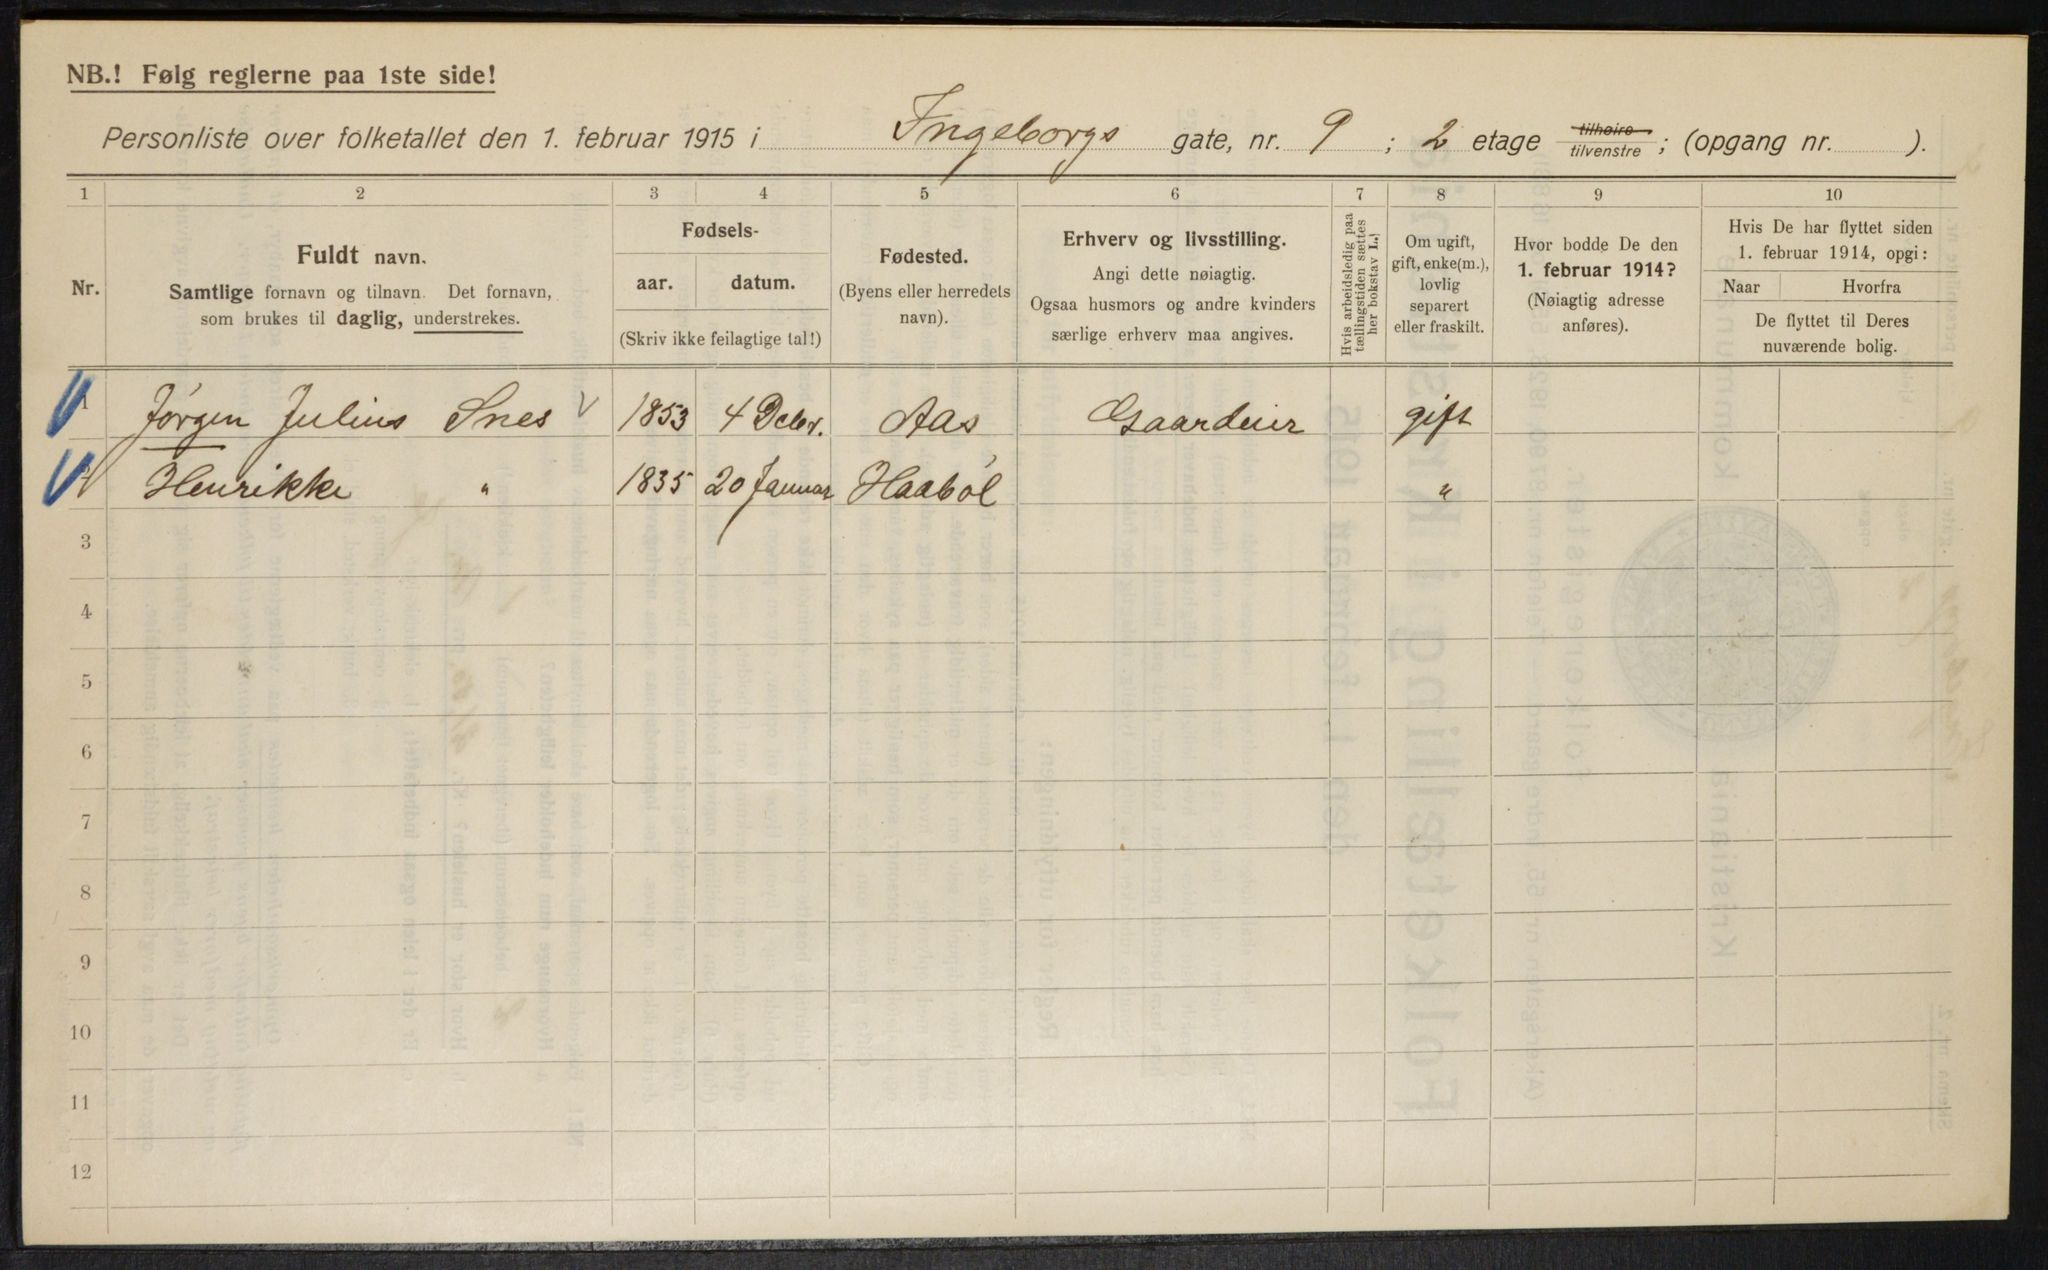 NB.! Følg reglerne paa 1ste side!
Personliste over folketallet den 1. februar 1915 i Ingeborgs gate, nr. 9 ; 2 etage tilhøire tilvenstre ; (opgang nr. ).
1 2 3 4 5 6 7 8 9 10
Nr.
Fuldt navn.
Samtlige fornavn og tilnavn. Det fornavn,
som brukes til daglig, understrekes.
Fødsels-
aar. datum.
(Skriv ikke feilagtige tal!)
Fødested.
(Byens eller herredets
navn).
Erhverv og livsstilling.
Angi dette nøiagtig.
Ogsaa husmors og andre kvinders
særlige erhverv maa angives.
Hvis arbeidsledig paa
tællingstiden sættes
her bokstav L.!
Om ugift,
gift, enke(m.),
lovlig
separert
eller fraskilt.
Hvor bodde De den
1. februar 1914?
(Nøiagtig adresse
anføres).
Hvis De har flyttet siden
1. februar 1914, opgi:
Naar Hvorfra
De flyttet til Deres
nuværende bolig.
1 Jørgen Julius Snes 1853 4 Debr. Aas Gaardeier gift
2 Henrikke " 1835 20 Januar Haabøl "
3
4
5
6
7
8
9
10
11
12